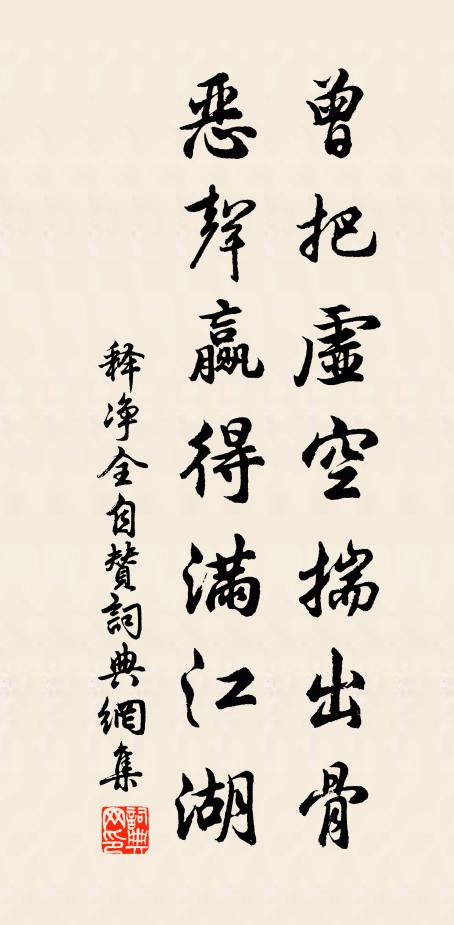 曾把虛空揣出骨
惡聲贏得滿江湖
释净全自贊詞典網集
詞典網印